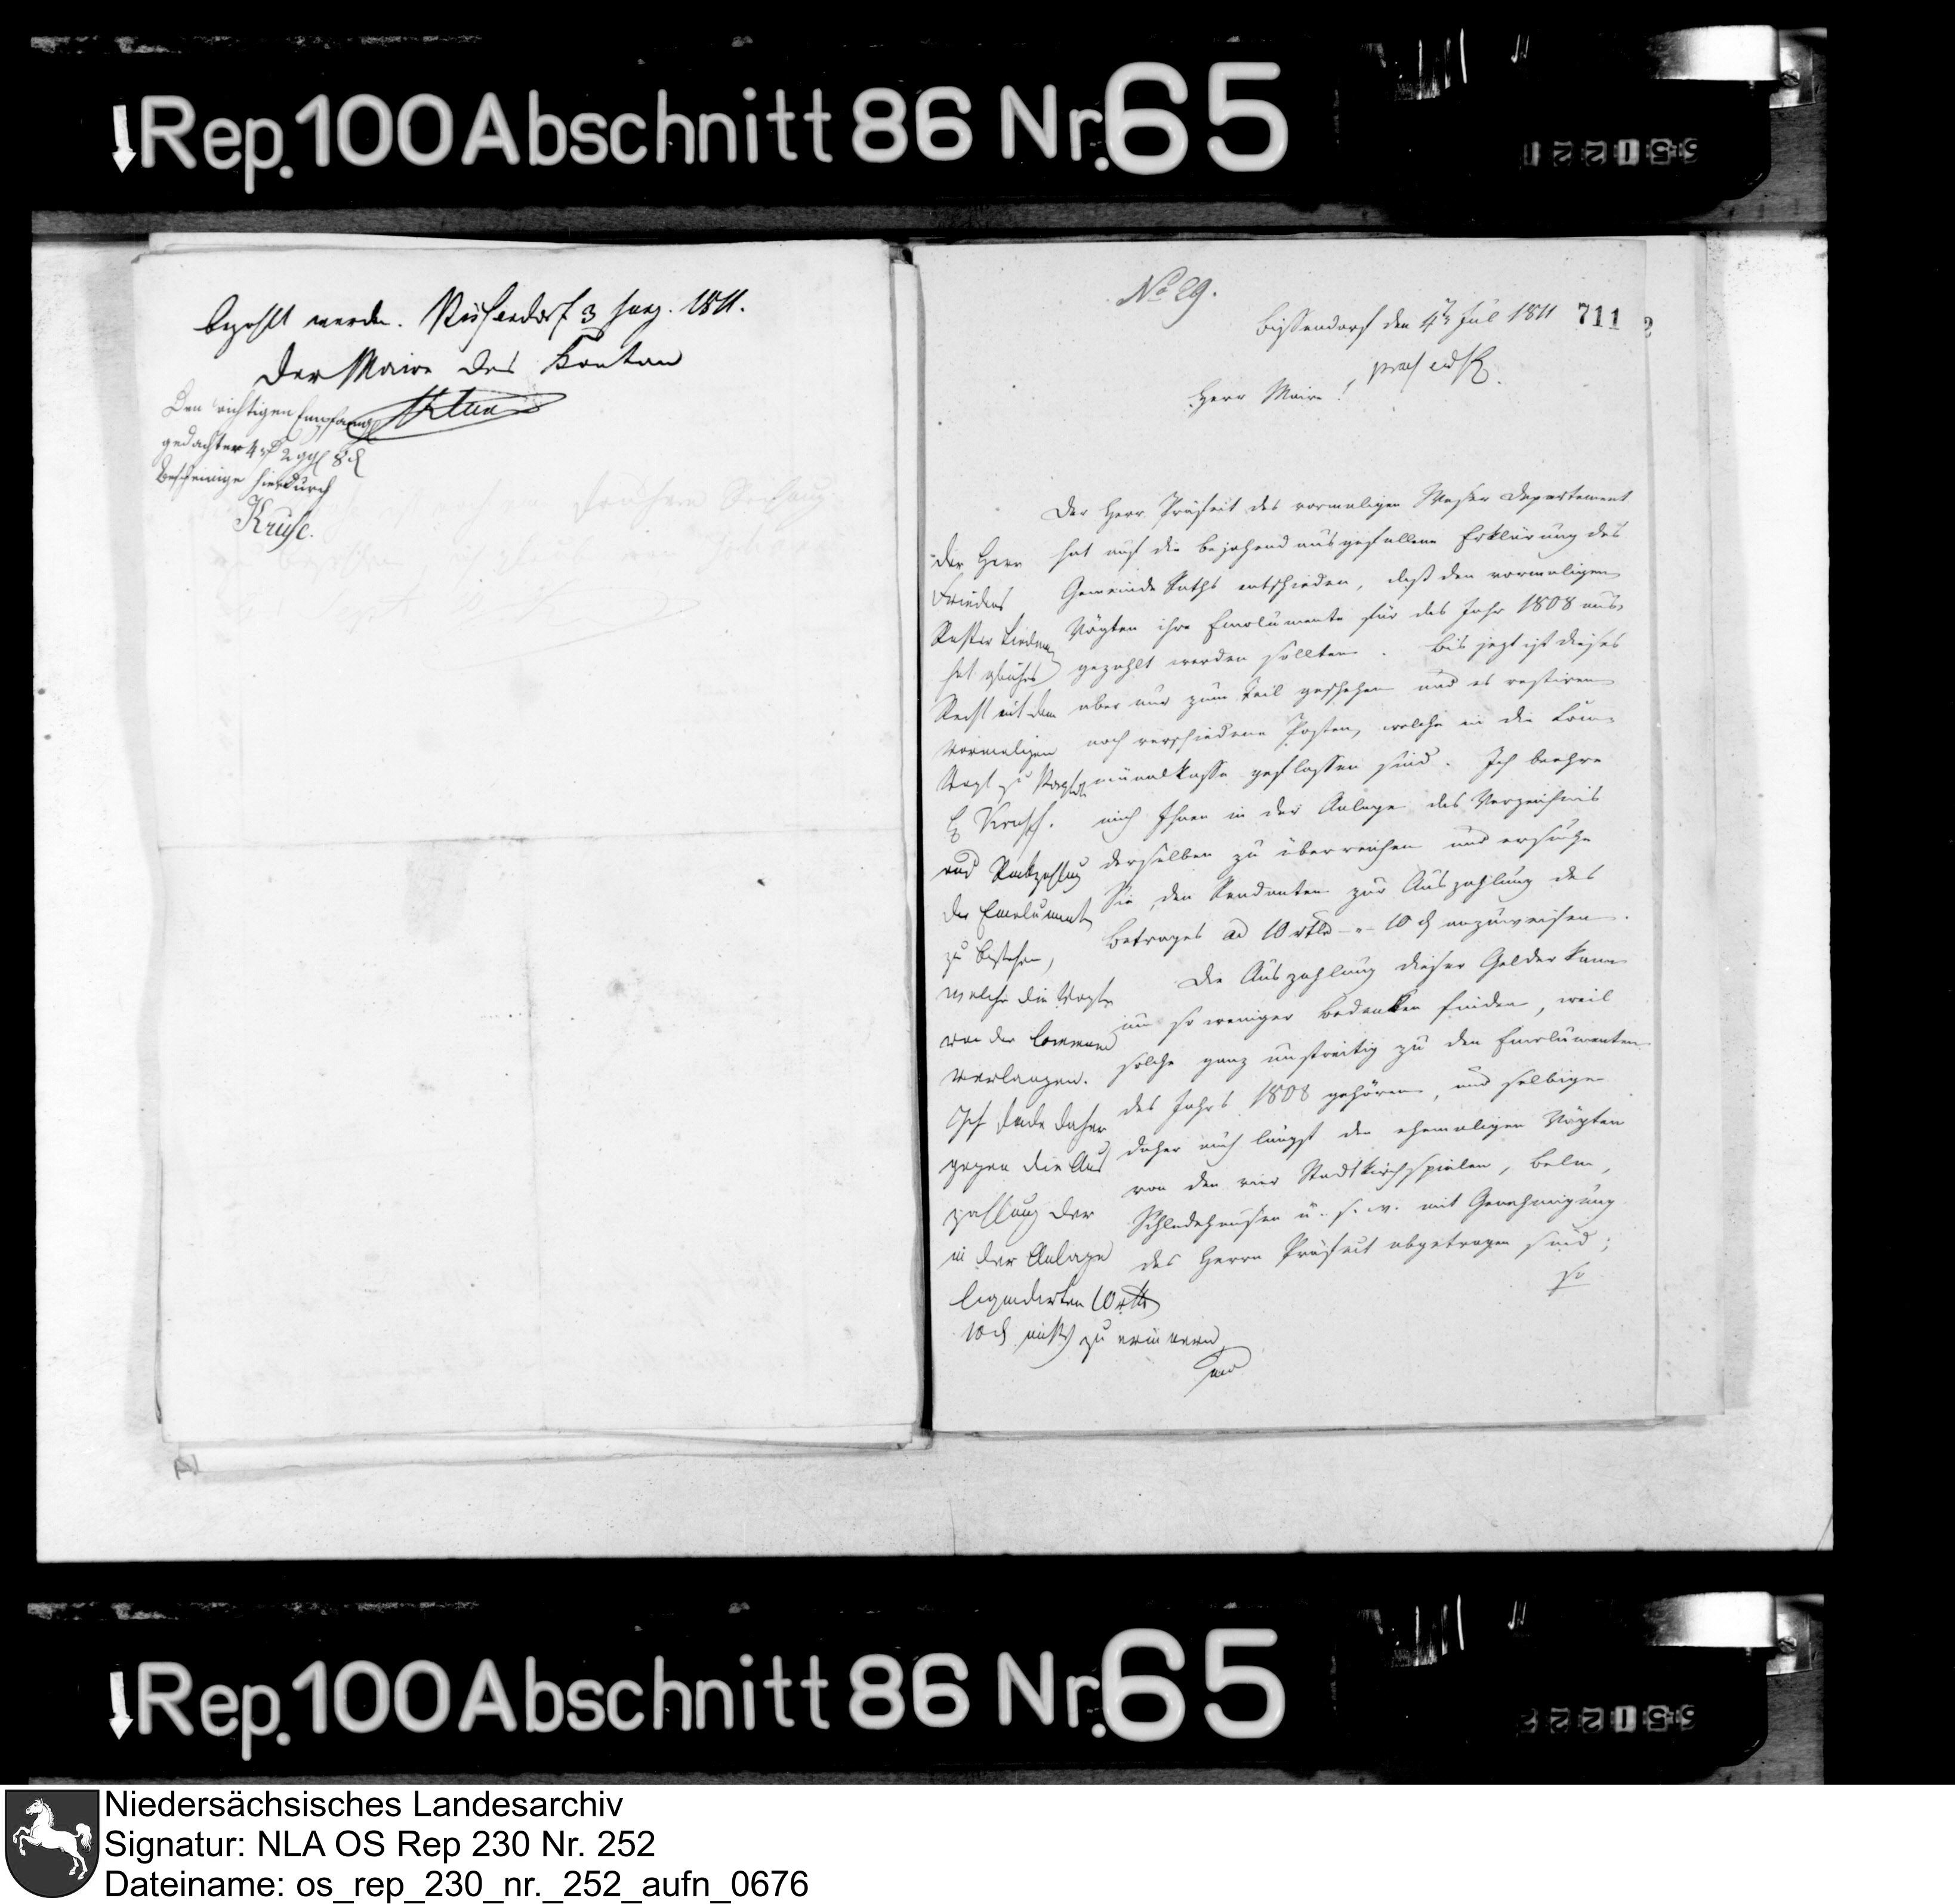 Rep. 100 Abschnitt 86 Nr. 65
bezahlt werden. Bissendorf 3 1811.
Der Maire des Kanton
Den richtigen Empfang
gedachter 4 rt 2 ggl 8 d
bescheinige hierdurch
Kruse.
No 29.
Bissendorf den 4ten Jul 1811
711
Herr Maire!
Der Herr Präfect des vormaligen Weser Departement
hat auf die bejahend ausgefallene Erklärung des
Gemeinde Raths entschieden, daß den vormaligen
Vögten ihre Emolumente für das Jahr 1808 aus-
gezahlt werden sollten. Bis jezt ist dieses
aber nur zum Teil geschehen und es restiren
noch verschiedene Posten, welche in die Com-
munalkasse geflossen sind. Ich beehre
mich Ihnen in der Anlage das Verzeichnis
derselben zu überreichen und ersuche
Sie, den Rendanten zur Auszahlung des
Betrages ad 10 rtlr - " - 10 d anzuweisen.
Die Auszahlung dieser Gelder kann
um so weniger Bedenken finden, weil
solche ganz unstreitig zu den Emolumenten
des Jahrs 1808 gehören, und selbige
daher auch längst den ehemaligen Vögten
von den vier Stadtkirchspielen, Belm,
Schledehausen u. s. w. mit Genehmigung
des Herrn Präfect abgetragen sind;
so
Der Herr
Friedens
Richter
hat
Recht mit dem
vormaligen
Vogt zu
Kruse.
auf Rückzahlung
der Emolumente
zu bestehen,
welche die Vögte
von der Commune
verlangen.
Ich finde daher
gegen die Aus
zahlung der
in der Anlage
liquidirten 10 rtlr
10 d nichts zu erinnern
Rep. 100 Abschnitt 86 Nr. 65
Niedersächsisches Landesarchiv
Signatur: NLA OS Rep 230 Nr. 252
Dateiname: os_rep_230_nr._252_aufn_0676